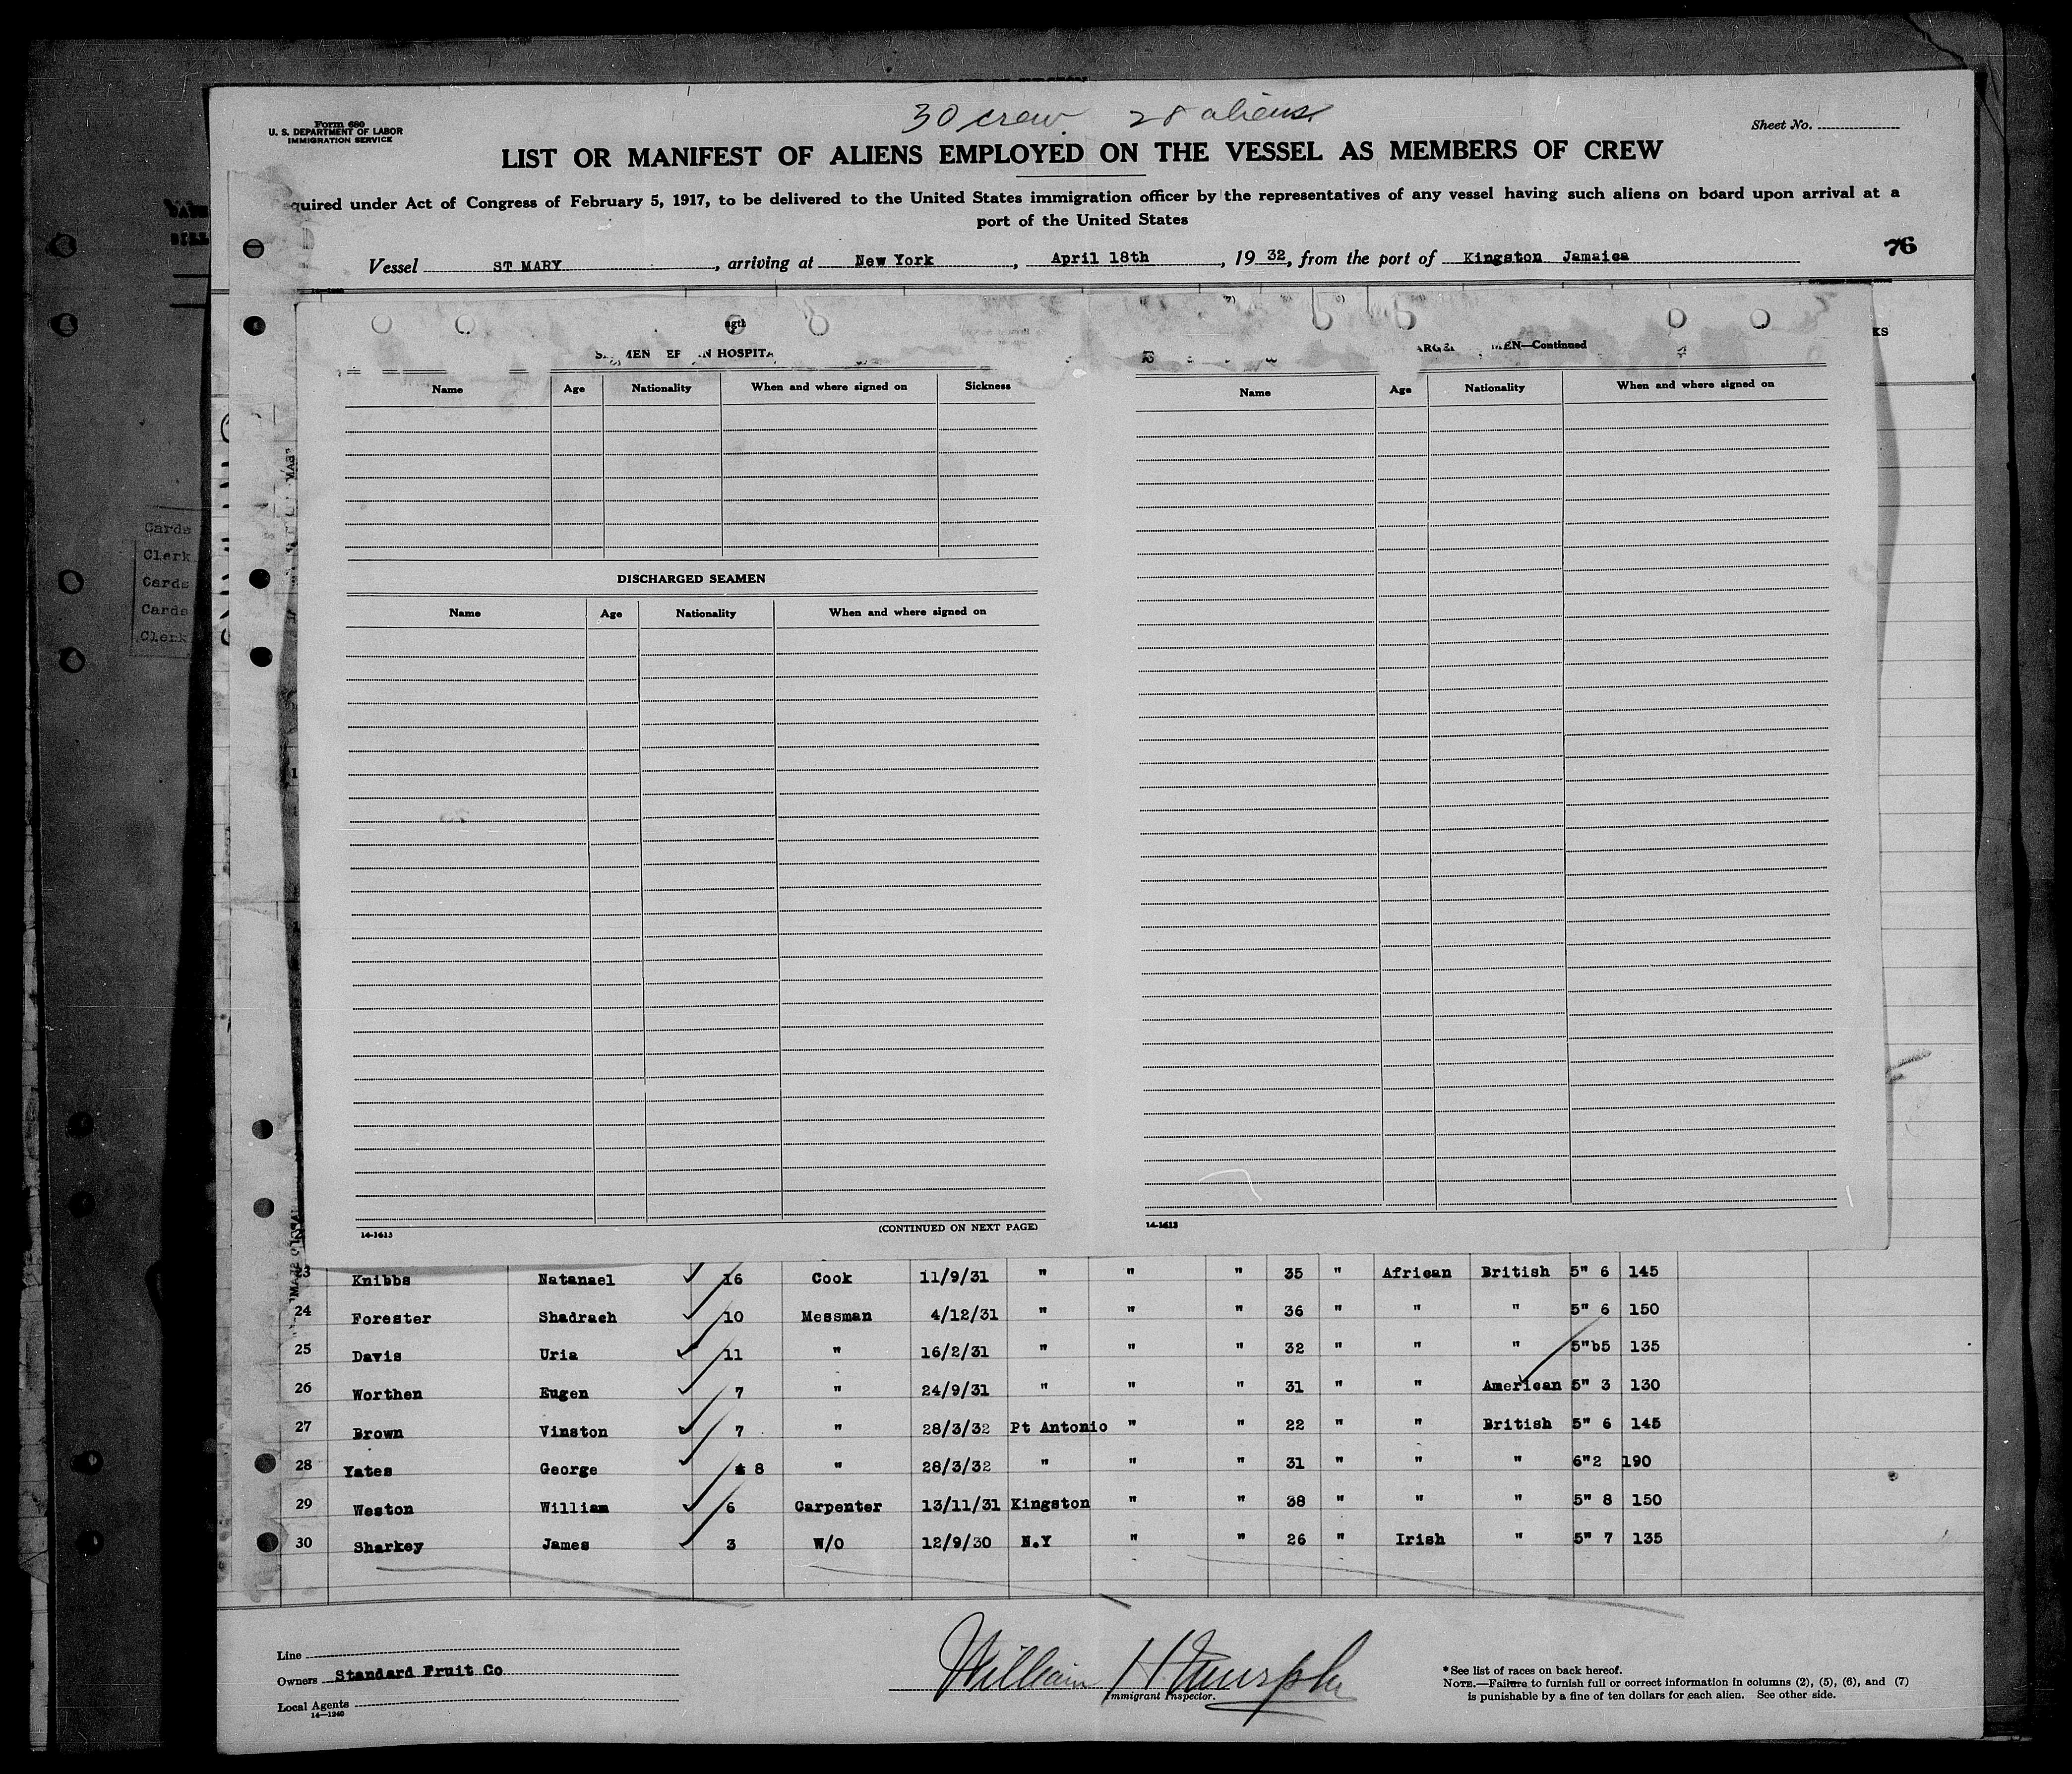 30 crew 28 aliens
Form 680
U. S. DEPARTMENT OF LABOR
IMMIGRATION SERVICE
Sheet No.
LIST OR MANIFEST OF ALIENS EMPLOYED ON THE VESSEL AS MEMBERS OF CREW
quired under Act of Congress of February 5, 1917, to be delivered to the United States immigration officer by the representatives of any vessel having such aliens on board upon arrival at a
port of the United States
76
Vessel ST MARY, arriving at New York, April 18th, 19 32, from the port of Kingston Jamaica
KS
MEN HOSPITA
MEN—Continued
Name Age Nationality When and where signed on Sickness
Name Age Nationality When and where signed on
DISCHARGED SEAMEN
Name Age Nationality When and where signed on
Cards
Clerk
Cards
Cards
Clerk
(CONTINUED ON NEXT PAGE)
14-1613
14-1613
3 Knibbs Natanael 16 Cook 11/9/31 " " " 35 " African British 5" 6 145
24 Forester Shadrach 10 Messman 4/12/31 " " " 36 " " " 5" 6 150
25 Davis Uria 11 " 16/2/31 " " " 32 " " " 5"b5 135
26 Worthen Eugen 7 " 24/9/31 " " " 31 " " American 5" 3 130
27 Brown Vinston 7 " 28/3/32 Pt Antonio " " 22 " " British 5" 6 145
28 Yates George 8 " 28/3/32 " " " 31 " " " 6"2 190
29 Weston William 6 Carpenter 13/11/31 Kingston " " 38 " " " 5" 8 150
30 Sharkey James 3 W/O 12/9/30 N.Y " " 26 " Irish " 5" 7 135
Line
Owners Standard Fruit Co
Local Agents
14—1240
William H Murphy
Immigrant Inspector.
*See list of races on back hereof.
NOTE.—Failure to furnish full or correct information in columns (2), (5), (6), and (7)
is punishable by a fine of ten dollars for each alien. See other side.